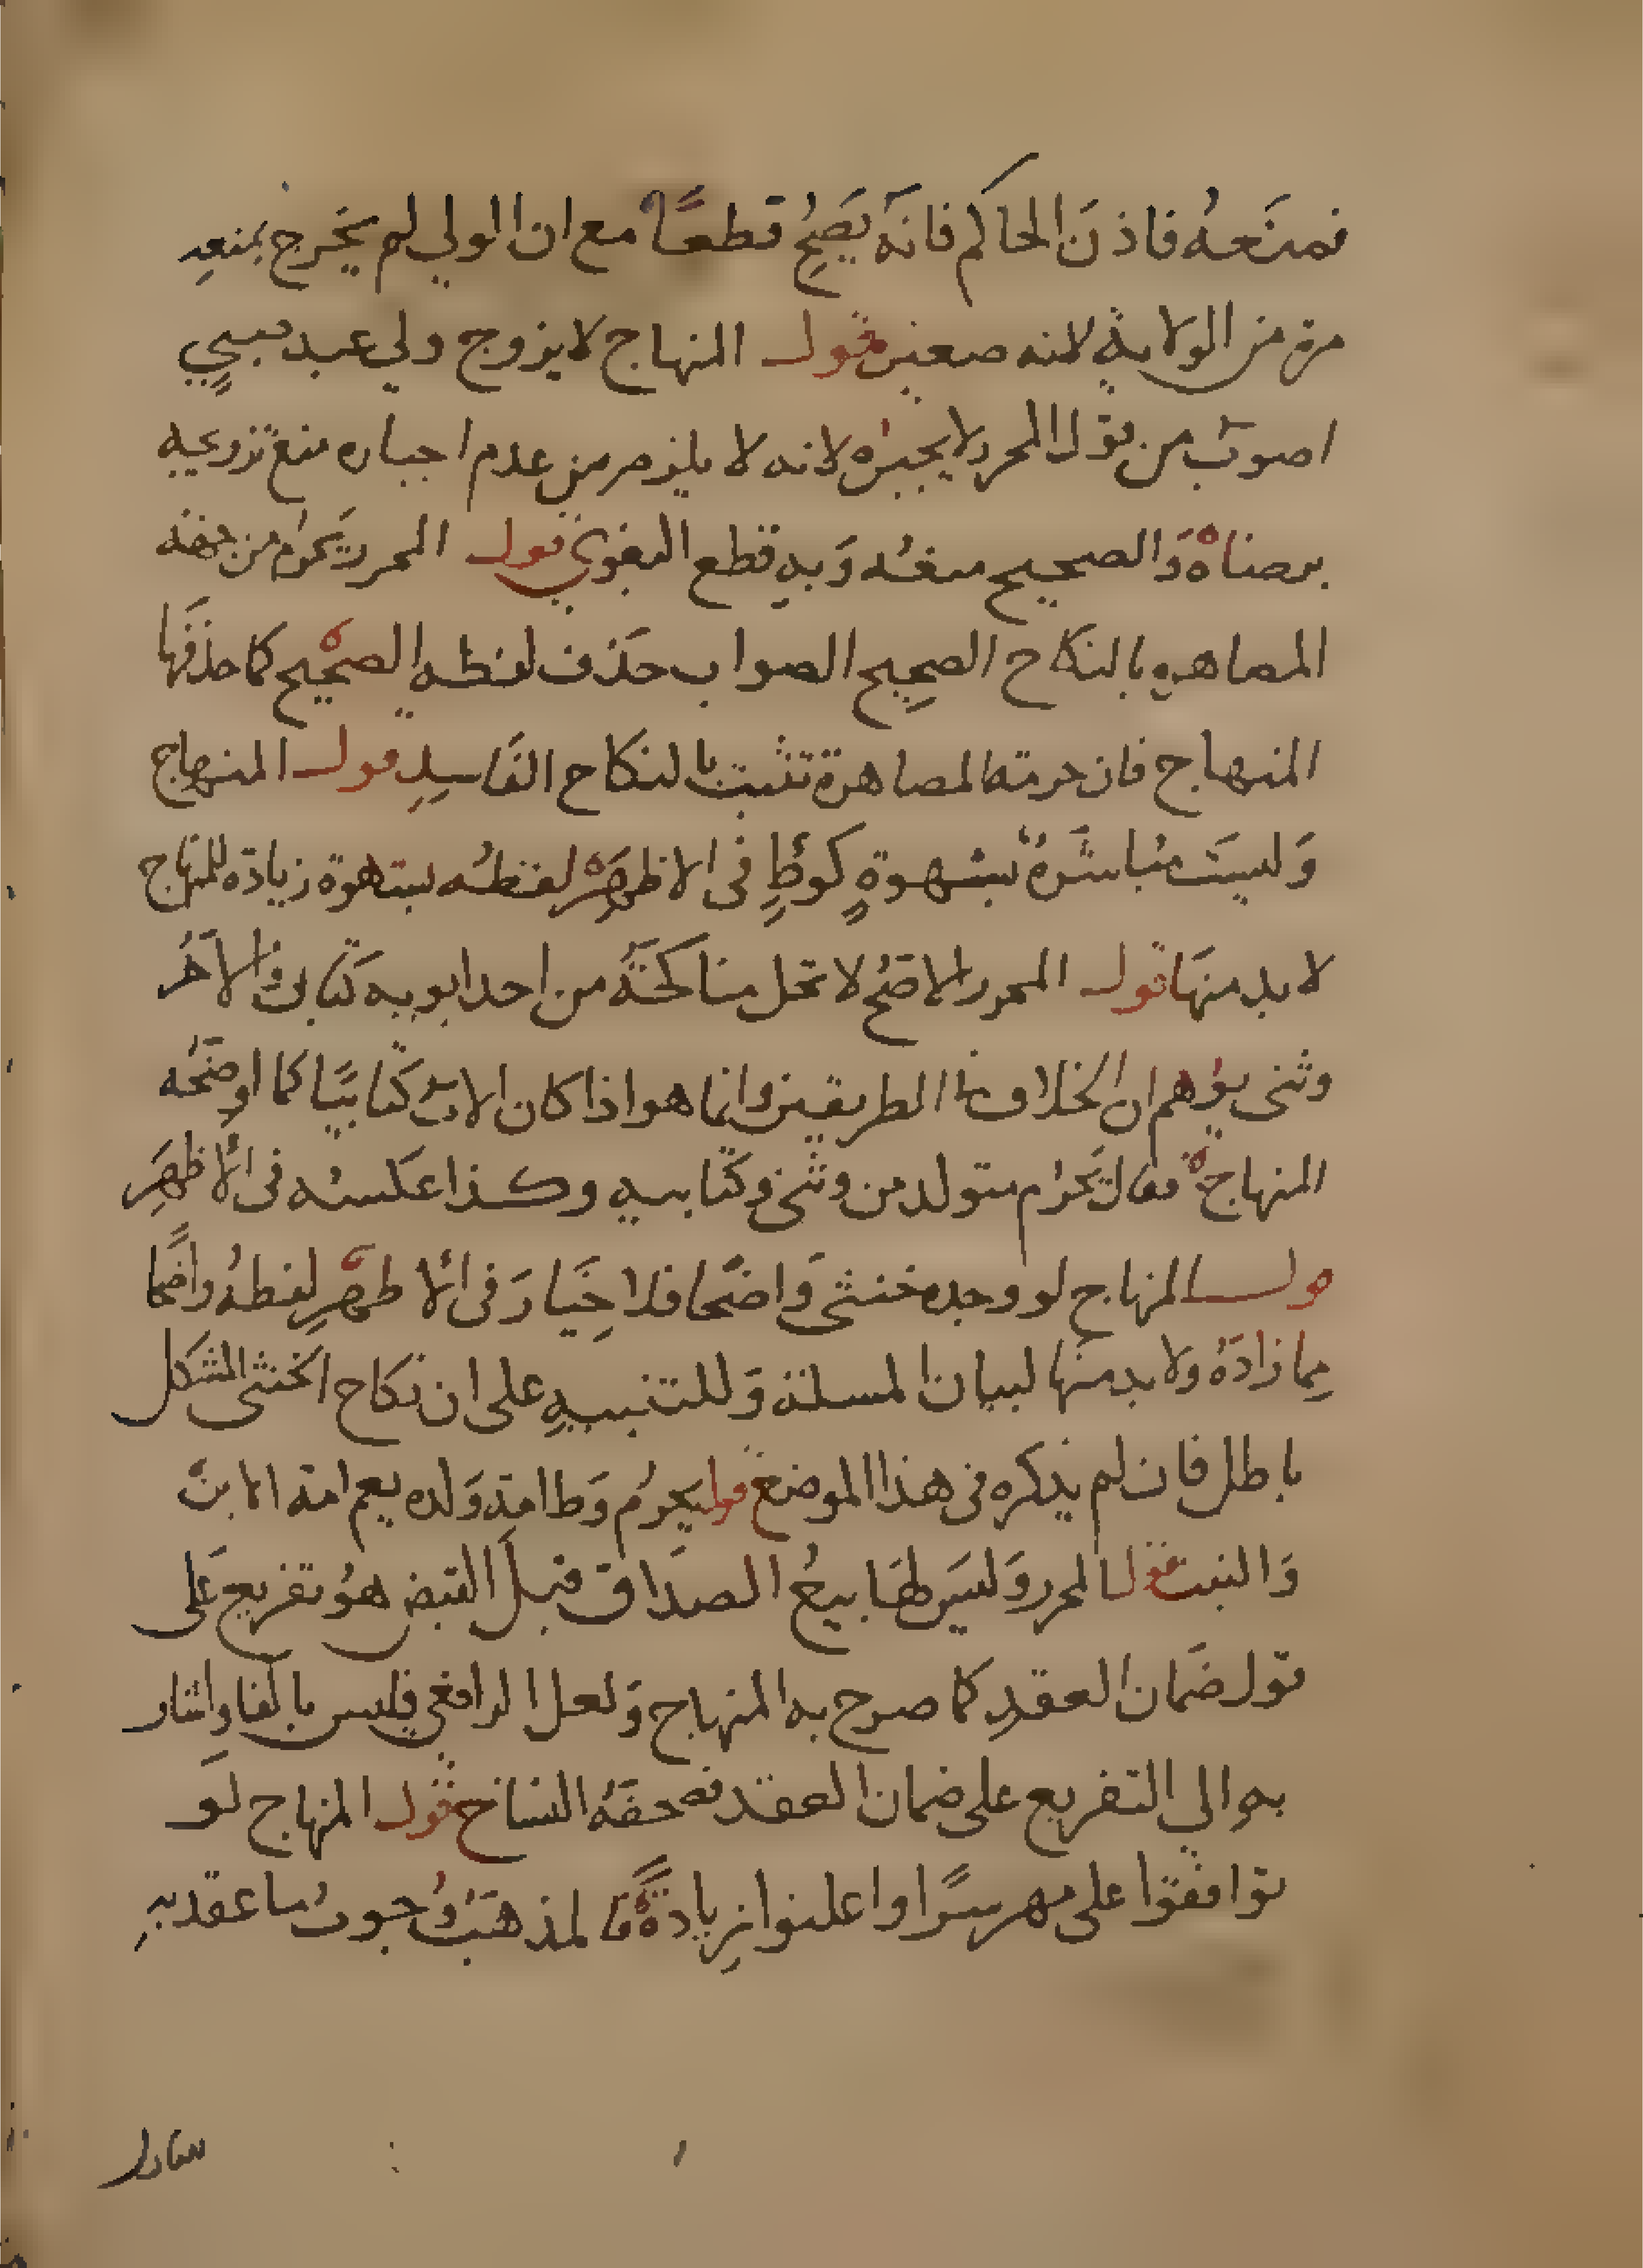 فمنعه فاذن الحاكم فانه يصح قطعًا مع ان الولي لم يخرج بمنعه
مرة من الولاية لانه صغيرة قول المنهاج لا يزوج ولي عبد صبي
اصوب من قول المحرر لا يجبره لانه لا يلزم من عدم اجباره منع تزويجه
برضاه والصحيح منعه وبه قطع البغوي قول المحرر يحرم من جهة
المصاهرة بالنكاح الصحيح الصواب حذف لفظة الصحيح كما حذفها
المنهاج فان حرمة المصاهرة تثبت بالنكاح الفاسد قول المنهاج
وليست مباشرة بشهوة كوطء في الاظهر لفظة بشهوة زيادة للمنهاج
لا بد منها قول المحرر الاصح لا تحل مناكحة من احد ابويه كتابي والآخر
وثني يوهم ان الخلاف في الطريقين وانما هو اذا كان الاب كتابيًا كما اوضحه
المنهاج فقال يحرم متولد من وثني وكتابية وكذا عكسه في الأظهر
قول المنهاج لو وجده خنثى واضحا فلا خيار في الأظهر لفظة واضحًا
مما زاده ولا بد منها لبيان المسلة وللتنبيه على ان نكاح الخنثى المشكل
باطل فان لم يذكره في هذا الموضع قوله يحرم وطء امة ولده يعم امة الابن
والبنت قول المحرر وليس لها بيع الصداق قبل القبض هو تفريع على
قول ضمان العقد كما صرح به المنهاج ولعل الرافعي فليس بالفاء واشار
به الي التفريع على ضمان العقد فصحفه الناسخ قول المنهاج لو
توافقوا على مهر سرًا واعلنوا زيادة فالمذهب وجوب ما عقد به